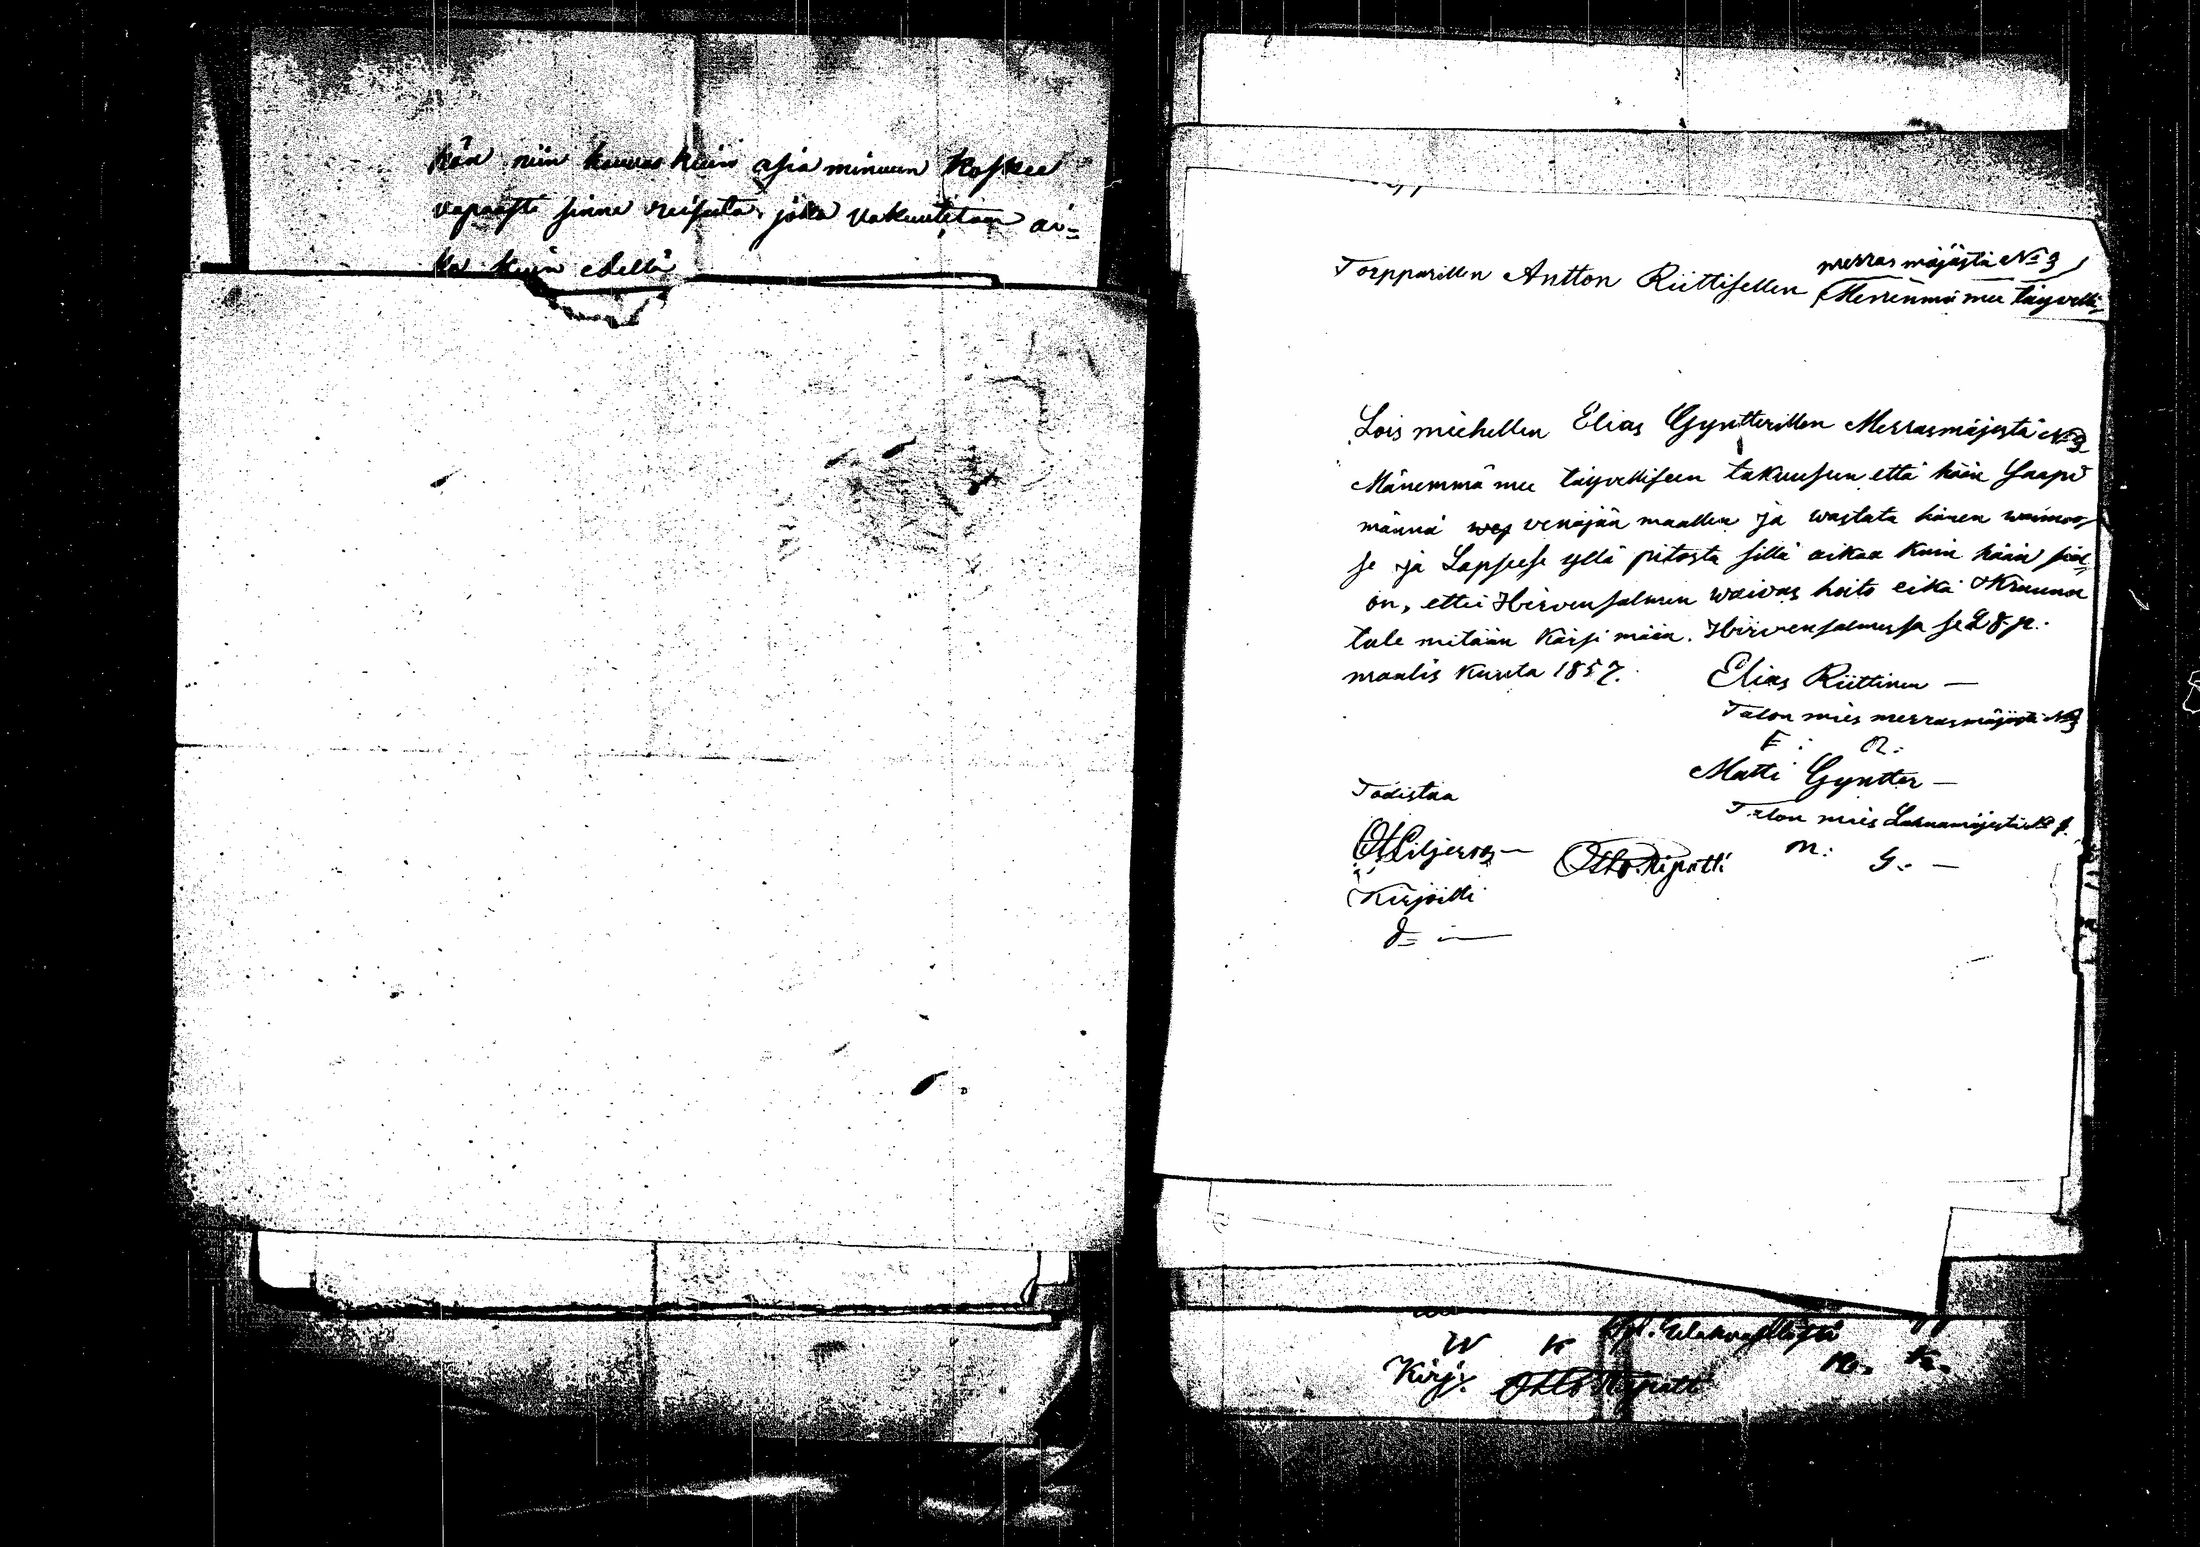 kän niin kauvas kuin asia minuun koskee
vapaasti sinne reisata, joka vakuutetaan ai=
ka kuin edellä
Torpparillen Antton Riittisellen merrasmäjästä No 3
Menenmä mee täyvelli=
Lois miehellen Elias Gyntterillen Merrasmäjestä No 3
Mänemmä mee täyvelliseen takuusun että hään saapi
männä venäjän maallen ja wastata hänen waimos
se ja Lapsese yllä pitosta sillä aikaa kuin hään siel=
on, ettei Hirvensalmen waivas hoito eikä Kruunu
tule mitään kärsimään. Hirvensalmessa se 28 p.
maalis kuuta 1857.
Elias Riittinen —
Talon mies merrasmäjästä No 3
E: R:
Matti Gyntter —
Todistaa
Talon mies
M: G: —
Otto Ripatti
Kirjoitti
W K
M. K.
Kirj. Otto Ripatti